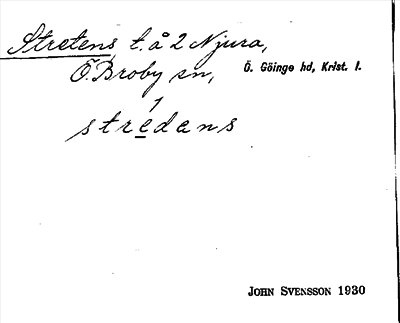 Stretens, t. å 2 Njura,
Ö. Broby sn, Ö. Göinge hd, Krist. l.
1
stredens
JOHN SVENSSON 1930